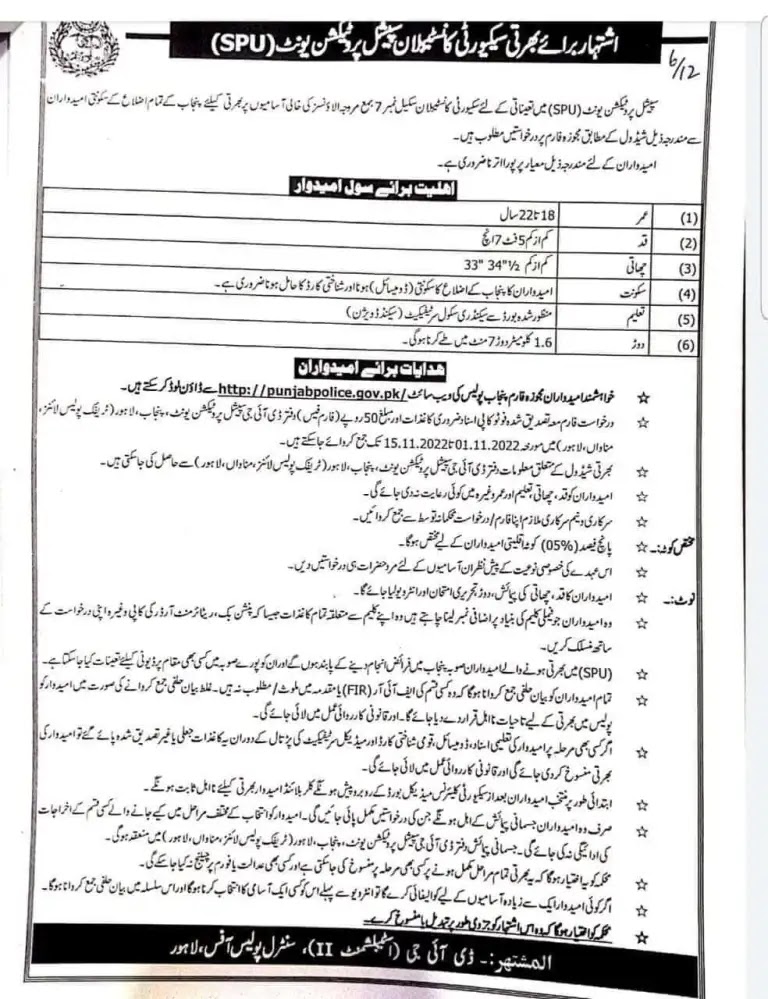 اشتہار برائے بھرتی سیکیورٹی کانسٹیبلان سپیشل پروٹیکشن یونٹ (SPU)
6/12
سپیشل پروٹیکشن یونٹ (SPU) میں تعیناتی کے لئے سیکورٹی کانسٹیبلان سکیل نمبر 7 بمع مروجہ الاؤنسز کی خالی آسامیوں پر بھرتی کیلئے پنجاب کے تمام اضلاع کے سکونتی امیدواران
سے مندرجہ ذیل شیڈول کے مطابق مجوزہ فارم پر درخواستیں مطلوب ہیں۔
امیدواران کے لئے مندرجہ ذیل معیار پر پورا اترنا ضروری ہے۔
اهلیت برائے سول امیدوار
(1) عمر 18 تا 22 سال
(2) قد کم از کم 5 فٹ 7 انچ
(3) چھاتی کم از کم 33" 34½"
(4) سکونت امیدواران کا پنجاب کے اضلاع کا سکونتی (ڈومیسائل) ہونا اور شناختی کارڈ کا حامل ہونا ضروری ہے۔
(5) تعلیم منظور شدہ بورڈ سے سیکنڈری سکول سرٹیفکیٹ (سیکنڈ ڈویژن)
(6) دوڑ 1.6 کلومیٹر دوڑ 7 منٹ میں طے کرنا ہوگی۔
هدایات برائے امیدواران
☆ خواہشمند امیدواران مجوزہ فارم پنجاب پولیس کی ویب سائٹ http://punjabpolice.gov.pk/ سے ڈاؤن لوڈ کر سکتے ہیں۔
☆ درخواست فارم معہ تصدیق شدہ فوٹو کاپی اسناد ضروری کاغذات اور مبلغ 50 روپے (فارم فیس) دفتر ڈی آئی جی سپیشل پروٹیکشن یونٹ، پنجاب، لاہور (ٹریفک پولیس لائنز،
مناواں، لاہور) میں مورخہ 01.11.2022 تا 15.11.2022 تک جمع کروائے جا سکتے ہیں۔
☆ بھرتی شیڈول کے متعلق معلومات دفتر ڈی آئی جی سپیشل پروٹیکشن یونٹ، پنجاب، لاہور (ٹریفک پولیس لائنز، مناواں، لاہور) سے حاصل کی جا سکتی ہیں۔
☆ امیدواران کو قد، چھاتی، تعلیم اور عمر وغیرہ میں کوئی رعایت نہ دی جائے گی۔
☆ سرکاری و نیم سرکاری ملازم اپنا فارم/درخواست محکمانہ توسط سے جمع کروائیں۔
مختص کوٹہ:۔ ☆ پانچ فیصد (05%) کوٹہ اقلیتی امیدواران کے لیے مختص ہوگا۔
☆ اس عہدے کی خصوصی نوعیت کے پیش نظر ان آسامیوں کے لئے مرد حضرات ہی درخواستیں دیں۔
نوٹ:۔ ☆ امیدواران کا قد، چھاتی کی پیمائش، دوڑ، تحریری امتحان اور انٹرویو لیا جائے گا۔
☆ وہ امیدواران جو فیملی کلیم کی بنیاد پر اضافی نمبر لینا چاہتے ہیں وہ اپنے کلیم سے متعلقہ تمام کاغذات جیسا کہ پنشن بک، ریٹائرمنٹ آرڈر کی کاپی وغیرہ اپنی درخواست کے
ساتھ منسلک کریں۔
☆ (SPU) میں بھرتی ہونے والے امیدواران صوبہ پنجاب میں فرائض انجام دینے کے پابند ہوں گے اور ان کو پورے صوبہ میں کسی بھی مقام پر ڈیوٹی کیلئے تعینات کیا جا سکتا ہے۔
☆ تمام امیدواران کو بیان حلفی جمع کروانا ہوگا کہ وہ کسی قسم کی ایف آئی آر (FIR) یا مقدمہ میں ملوث / مطلوب نہ ہیں۔ غلط بیان حلفی جمع کروانے کی صورت میں امیدوار کو
پولیس میں بھرتی کے لیے تاحیات نااہل قرار دے دیا جائے گا۔ اور قانونی کارروائی عمل میں لائی جائے گی۔
☆ اگر کسی بھی مرحلہ پر امیدوار کی تعلیمی اسناد، ڈومیسائل، قومی شناختی کارڈ اور میڈیکل سرٹیفکیٹ کی پڑتال کے دوران یہ کاغذات جعلی یا غیر تصدیق شدہ پائے گئے تو امیدوار کی
بھرتی منسوخ کر دی جائے گی اور قانونی کارروائی عمل میں لائی جائے گی۔
☆ ابتدائی طور پر منتخب امیدواران بعد از سیکورٹی کلیئرنس میڈیکل بورڈ کے روبرو پیش ہونگے کلر بلائنڈ امیدوار بھرتی کیلئے نااہل ثابت ہونگے۔
☆ صرف وہ امیدواران جسمانی پیمائش کے اہل ہونگے جن کی درخواستیں مکمل پائی جائیں گی۔ امیدوار کو انتخاب کے مختلف مراحل میں کیے جانے والے کسی قسم کے اخراجات
کی ادائیگی نہ کی جائے گی۔ جسمانی پیمائش دفتر ڈی آئی جی سپیشل پروٹیکشن یونٹ، پنجاب، لاہور (ٹریفک پولیس لائنز، مناواں، لاہور) میں منعقد ہوگی۔
☆ محکمہ کو یہ اختیار ہوگا کہ یہ بھرتی تمام مراحل مکمل ہونے پر کسی بھی مرحلہ پر منسوخ کی جا سکتی ہے اور کسی بھی عدالت یا فورم پر چیلنج نہ کیا جا سکے گی۔
☆ اگر کوئی امیدوار ایک سے زیادہ آسامیوں کے لیے کوالیفائی کرے گا تو انٹرویو سے پہلے اس کو کسی ایک آسامی کا انتخاب کرنا ہوگا اور اس سلسلہ میں بیان حلفی جمع کروانا ہوگا۔
☆ محکمہ کو اختیار ہوگا کہ وہ اس اشتہار کو جزوی طور پر تبدیل یا منسوخ کرے۔
المشتہر:۔ ڈی آئی جی (اسٹیبلشمنٹ II)، سنٹرل پولیس آفس، لاہور